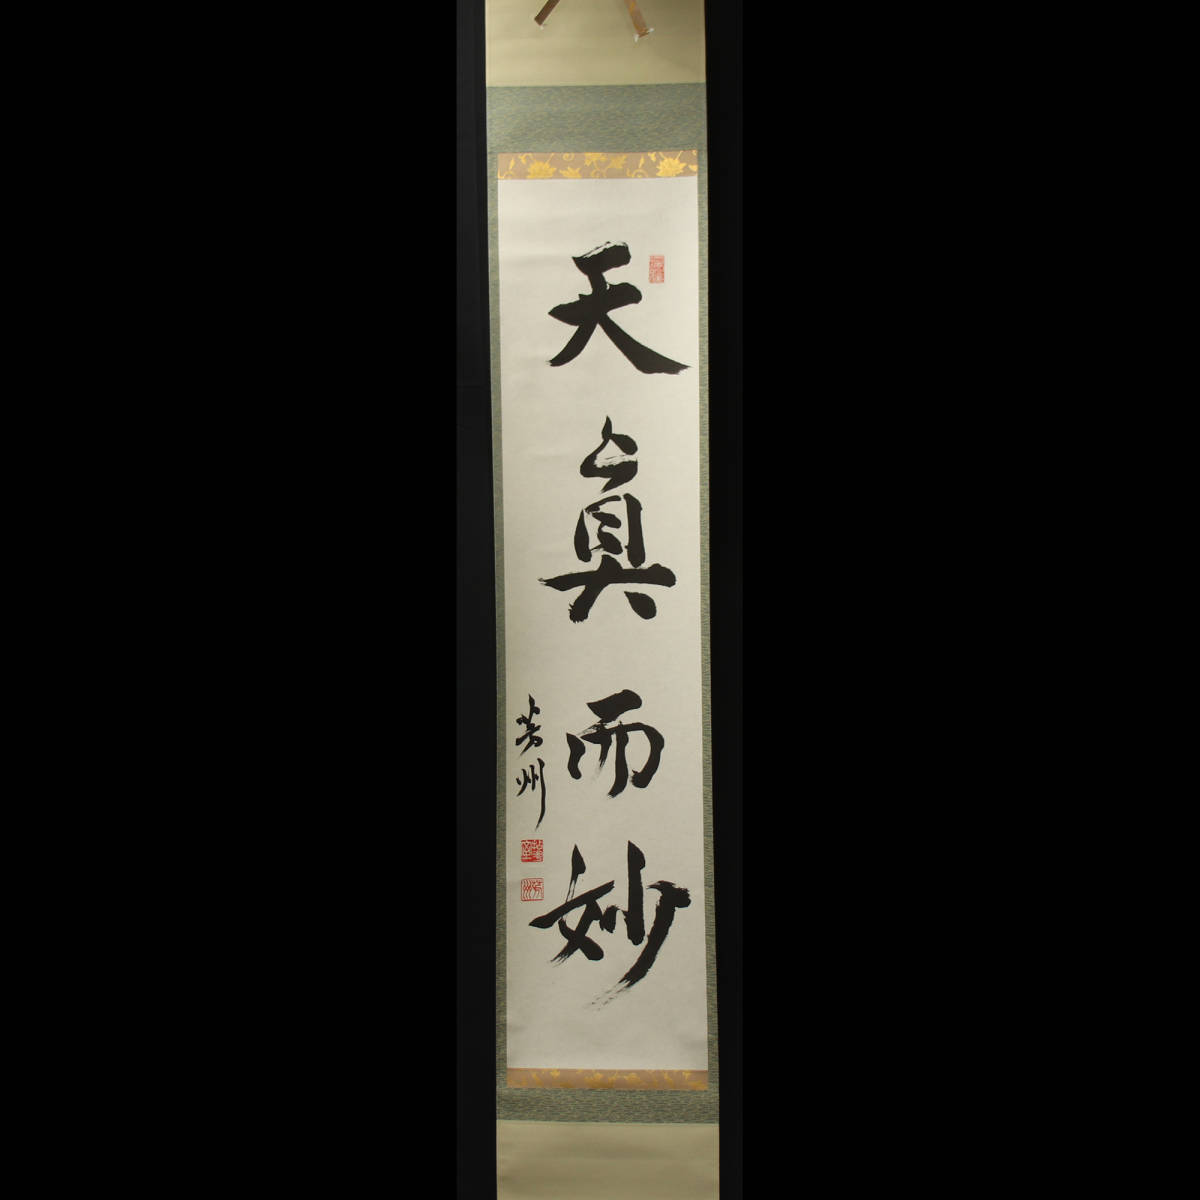 天眞而妙
芳州